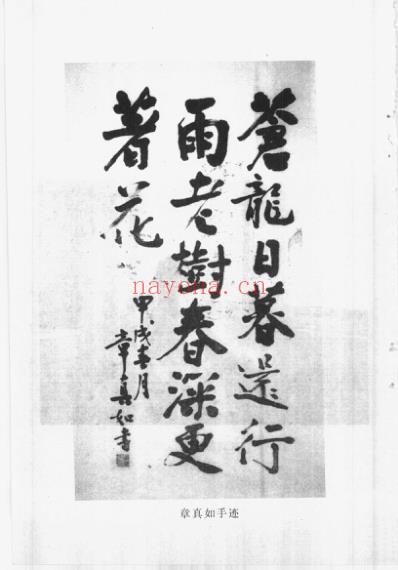 蒼龍日暮還行
雨老樹春深更
著花
甲戌春月
章真如书
nayona.cn
章真如手迹